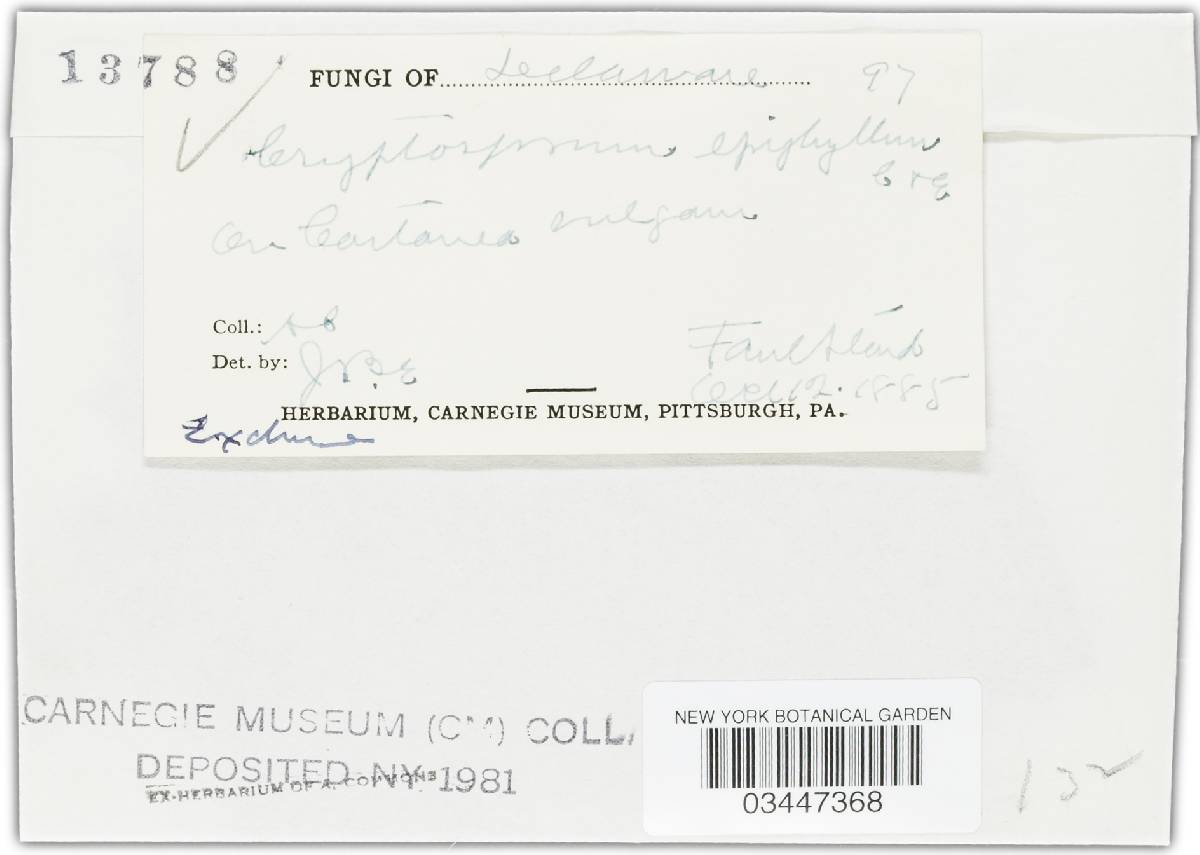 13788
FUNGI OF Delaware 97
Cryptosporium epiphyllum
C & E
On Castanea vulgaris
Coll.: AC
Det. by: J.B.E
Faulkland
Oct 12. 1885
HERBARIUM, CARNEGIE MUSEUM, PITTSBURGH, PA.
CARNEGIE MUSEUM (CM) COLL.
DEPOSITED NY 1981
EX-HERBARIUM OF A. COMMONS
NEW YORK BOTANICAL GARDEN
03447368
132